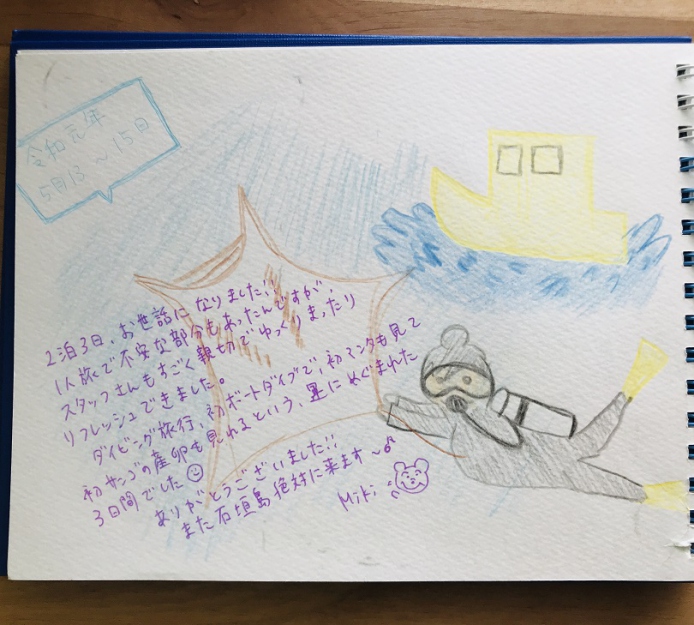 令和元年
5月13〜15日
2泊3日、お世話になりました!!
1人旅で不安な部分もあったんですが、
スタッフさんもすごく親切でゆっくりまったり
リフレッシュできました。
ダイビング旅行、初ボートダイブで、初マンタも見て
初サンゴの産卵も見れるという、運にめぐまれた
3日間でした☺
ありがとうございました!!
また石垣島絶対に来ます〜♪
Miki